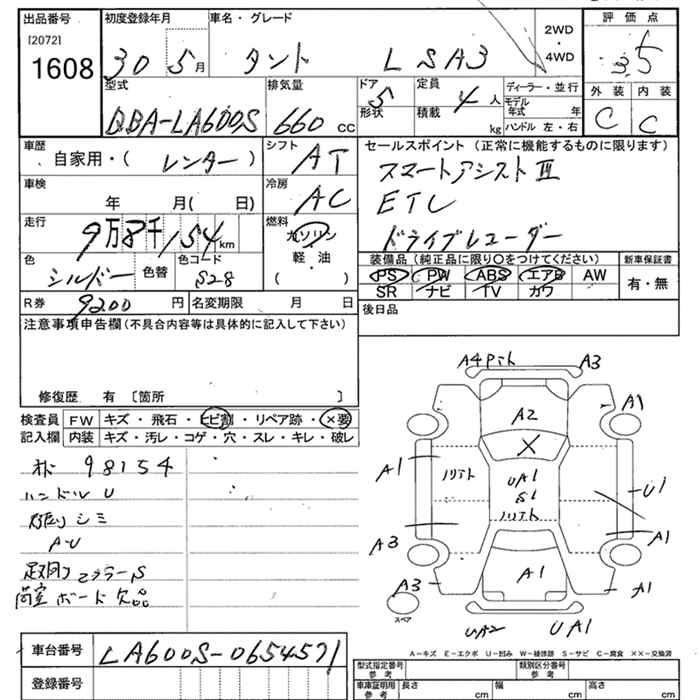 出品番号 初度登録年月 車名・グレード 2WD・4WD 評価点
[2072]
1608 30 5月 タント L SA3 3.5
外装 内装
C C
型式 排気量 ドア 定員 ディーラー・並行
DBA-LA600S 660 CC 5 4人 モデル年式 年
形状 積載 kg ハンドル 左・右
車歴 自家用・( レンター ) シフト AT
セールスポイント (正常に機能するものに限ります)
スマートアシストⅢ
ETC
ドライブレコーダー
車検 年 月( 日) 冷房 AC
走行 9万8千154km 燃料 ガソリン 軽・油 ( )
色 シルバー 色替 色コード S28
装備品 (純正品に限り○をつけてください) 新車保証書
PS PW ABS エアB AW 有・無
SR ナビ TV カワ
R券 9200円 名変期限 月 日
後日品
注意事項申告欄 (不具合内容等は具体的に記入して下さい)
修復歴 有 〔箇所 〕
検査員記入欄 FW キズ・飛石・ヒビ割・リペア跡・×要
内装 キズ・汚レ・コゲ・穴・スレ・キレ・破レ
98154
ハンドル U
シミ
A-U
マフラーS
荷室ボード欠品
A4 A3
A1
A2
X
A1
UA1
S1
U1
A3
A1
A1
A3
A1
スペア
UA2 UA1
A-キズ E-エクボ U-凹み W-補修跡 S-サビ C-腐食 ××-交換済
車台番号 LA600S-0654571
登録番号
型式指定番号 参考 類別区分番号 参考
車庫証明用 参考 長さ cm 幅 cm 高さ cm